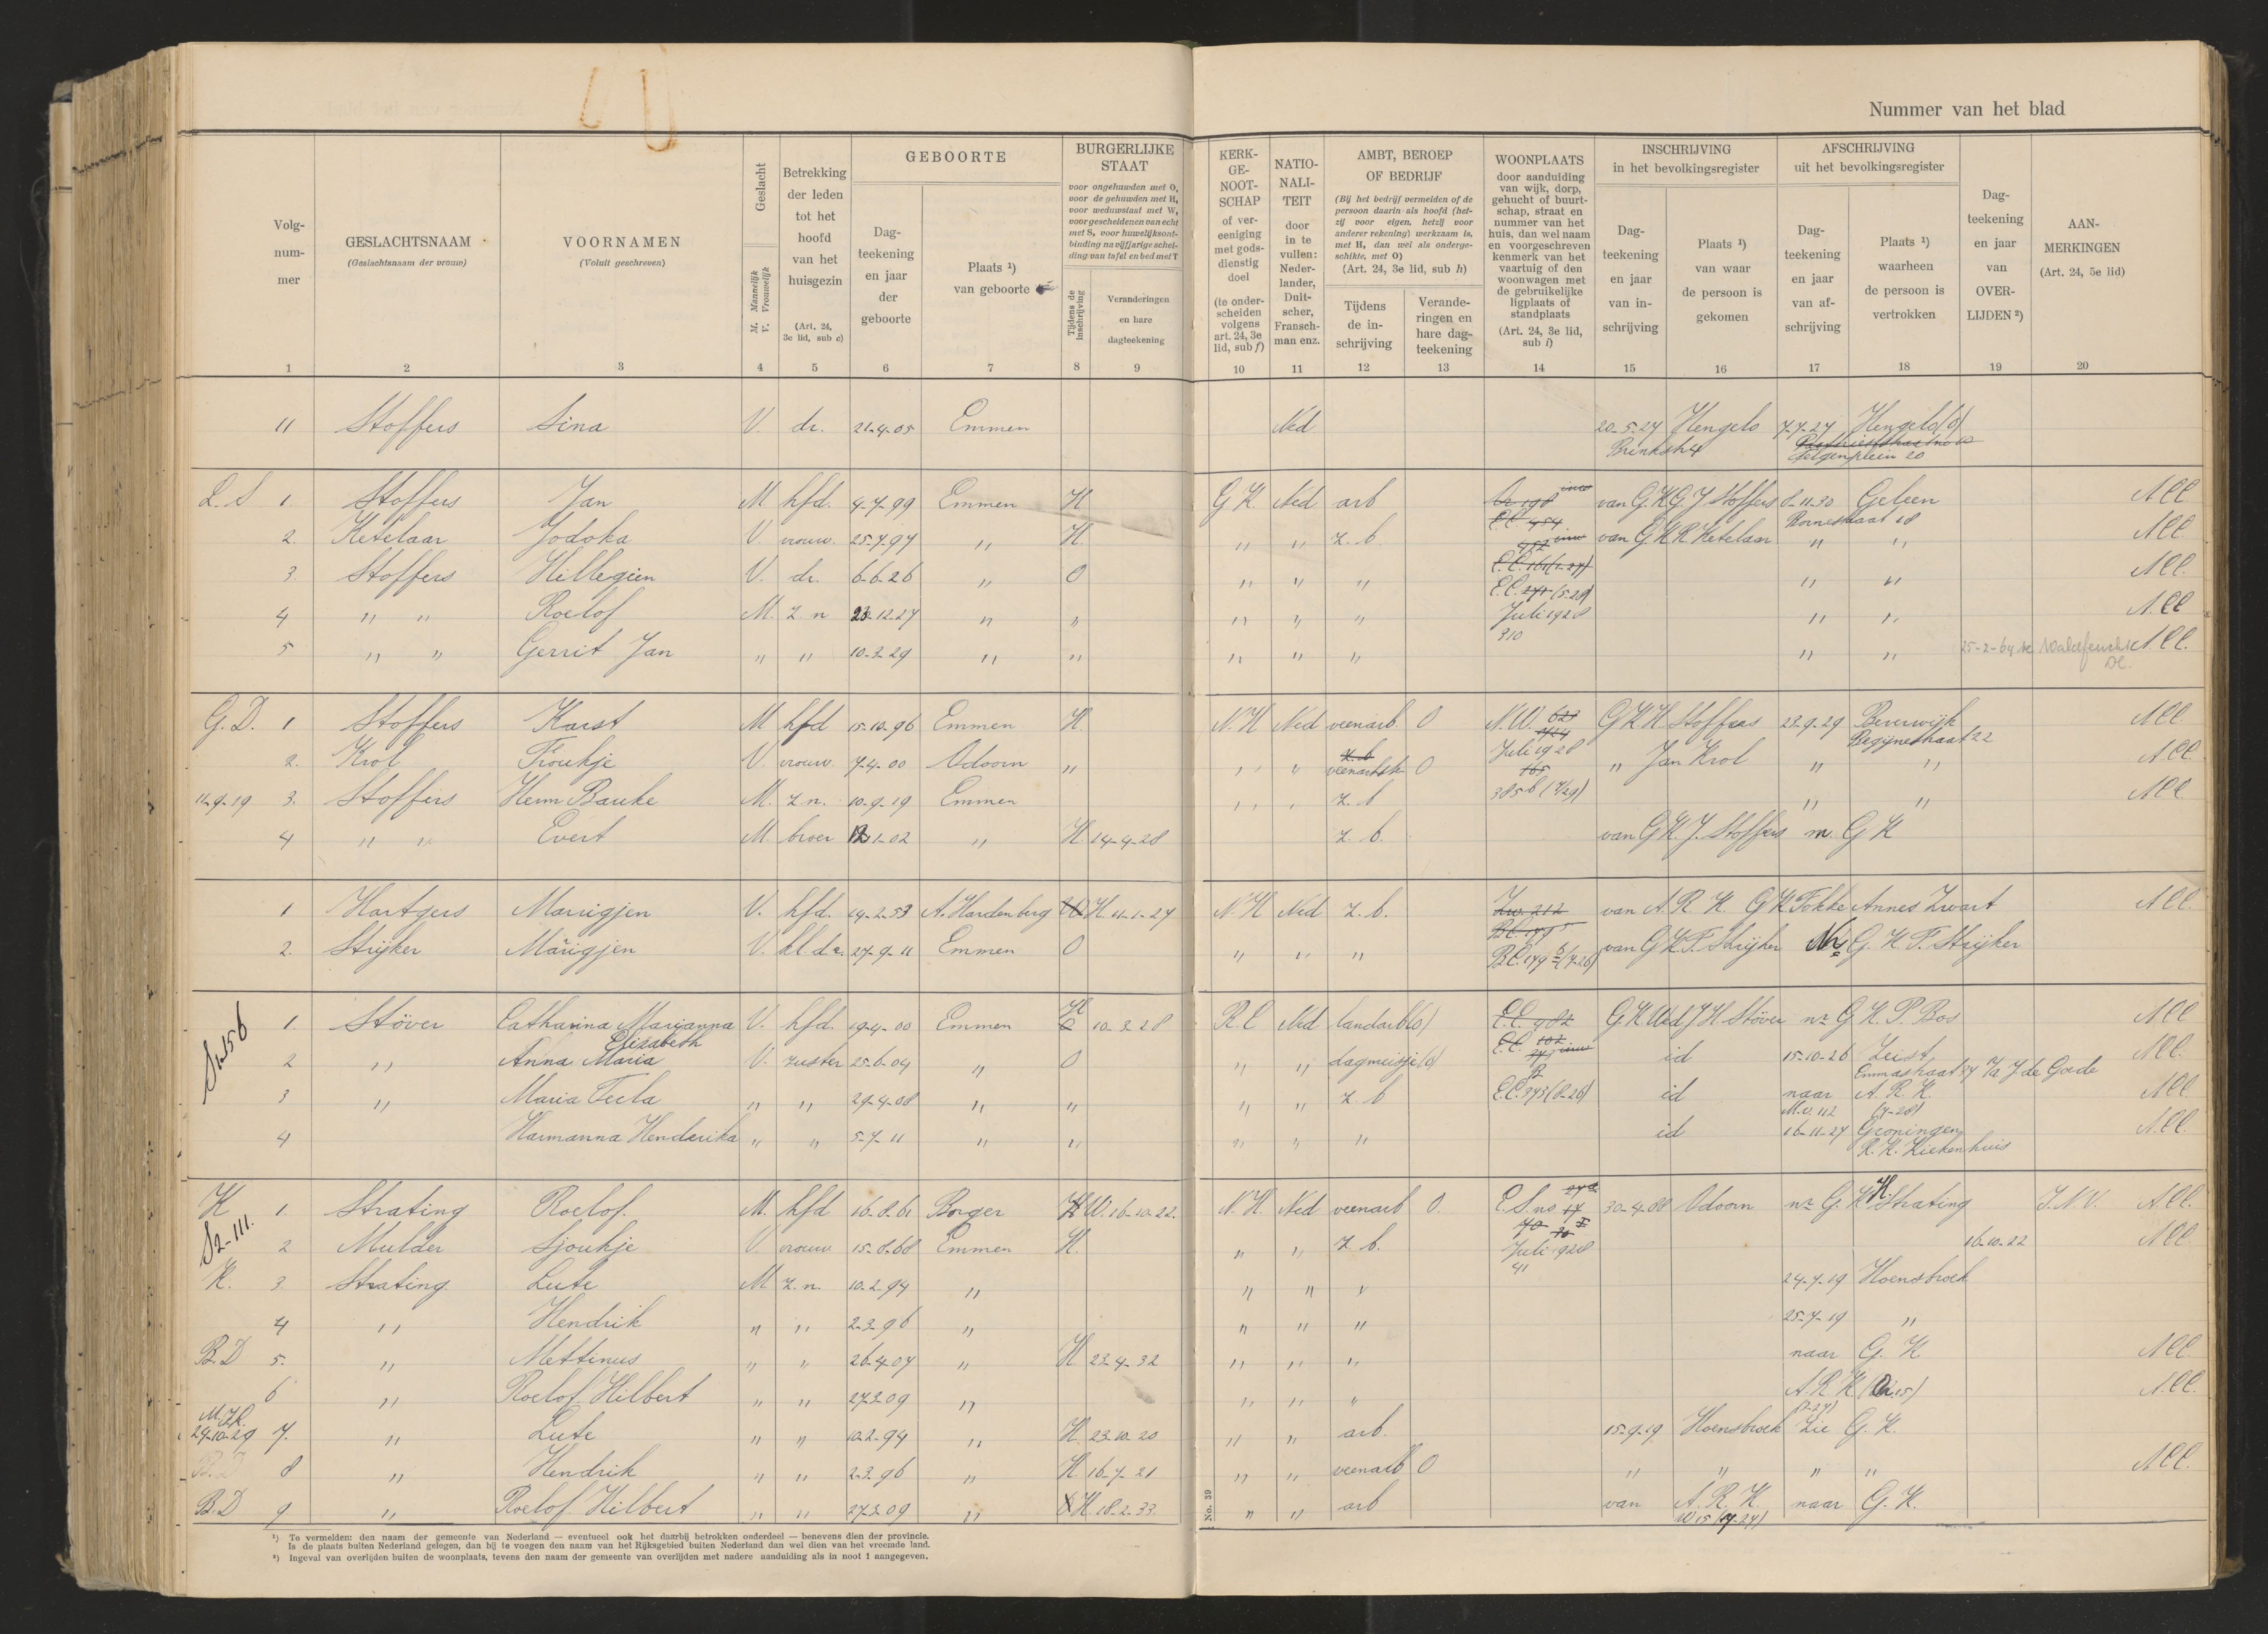 Nummer van het blad
Volg-
num-
mer
GESLACHTSNAAM
(Geslachtsnaam der vrouw)
VOORNAMEN
(Voluit geschreven)
Geslacht
M. Mannelijk
V. Vrouwelijk
Betrekking
der leden
tot het
hoofd
van het
huisgezin
(Art. 24,
3e lid, sub c)
GEBOORTE
Dag-
teekening
en jaar
der
geboorte
Plaats ¹)
van geboorte
BURGERLIJKE
STAAT
voor ongehuwden met O,
voor de gehuwden met H,
voor weduwstaat met W,
voor gescheidenen van echt
met S, voor huwelijksont-
binding na vijfjarige schei-
ding van tafel en bed met T
Tijdens de
inschrijving
Veranderingen
en hare
dagteekening
KERK-
GE-
NOOT-
SCHAP
of ver-
eeniging
met gods-
dienstig
doel
(te onder-
scheiden
volgens
art. 24, 3e
lid, sub f)
NATIO-
NALI-
TEIT
door
in te
vullen:
Neder-
lander,
Duit-
scher,
Fransch-
man enz.
AMBT, BEROEP
OF BEDRIJF
(Bij het bedrijf vermelden of de
persoon daarin als hoofd (het-
zij voor eigen, hetzij voor
anderer rekening) werkzaam is,
met H, dan wel als onderge-
schikte, met O)
(Art. 24, 3e lid, sub h)
Tijdens
de in-
schrijving
Verande-
ringen en
hare dag-
teekening
WOONPLAATS
door aanduiding
van wijk, dorp,
gehucht of buurt-
schap, straat en
nummer van het
huis, dan wel naam
en voorgeschreven
kenmerk van het
vaartuig of den
woonwagen met
de gebruikelijke
ligplaats of
standplaats
(Art. 24, 3e lid,
sub i)
INSCHRIJVING
in het bevolkingsregister
Dag-
teekening
en jaar
van in-
schrijving
Plaats ¹)
van waar
de persoon is
gekomen
AFSCHRIJVING
uit het bevolkingsregister
Dag-
teekening
en jaar
van af-
schrijving
Plaats ¹)
waarheen
de persoon is
vertrokken
Dag-
teekening
en jaar
van
OVER-
LIJDEN ²)
AAN-
MERKINGEN
(Art. 24, 5e lid)
1 2 3 4 5 6 7 8 9 10 11 12 13 14 15 16 17 18 19 20
11 Stoffers Sina V. dr. 21-4-05 Emmen Ned 20-5-27 Hengelo 7-7-27 Hengelo (O)
Brinkstr 4
20
L.S 1. Stoffers Jan M. hfd. 4-7-99 Emmen H G K. Ned arb van G.K G J Stoffers 8-11-30 Geleen All
454 18
2. Ketelaar Jodoka V. vrouw. 25-7-97 " H. " " z. b. van G.K R Ketelaar " " All
3. Stoffers Hillegien V. dr. 6-6-26 " O " " " " " All
4 " " Roelof M. z. n 23-12-27 " " " " " Juli 1928 " " All
310
5 " " Gerrit Jan " " 10-3-29 " " " " " " " 25-2-64 te Waldfeucht All.
Dl.
G. D. 1 Stoffers Karst M hfd 15-10-96 Emmen H. N. H Ned veenarb. O N.W. G K H Stoffers 23-9-29 Beverwijk All
Begijnestraat 22
2. Krol Froukje V vrouw 7-4-00 Odoorn " " " O Juli 1928 " Jan Krol " " All
11-9-19 3. Stoffers Herm Bauke M. z n. 10-9-19 Emmen " " z. b 385b (7/29) " " All
4 " " Evert M. broer 12-1-02 " H. 14-4-28 z. b. van G K. J. Stoffers n. G K
1 Hartgers Marrigjen V. hfd. 14-2-53 A. Hardenberg H. 11-1-27 N. H Ned z. b. van A. R. K. G K Fokke Annes Zwart All.
2. Strijker Marigjen V. kl. dr. 27-9-11 Emmen O " " " van G K F. Strijker Nr G. K F. Strijker
S 1556
1. Stöver Catharina Marianna V. hfd. 19-4-00 Emmen H 10-3-28 R. C Ned landarb (o) E.C. 982 G K Wed J H. Stöver nr G K. P. Bos All
Elisabeth
2 " Anna Maria V. zuster 25-6-04 " O " " dagmeisje (o) id 15-10-26 Zeist All.
Emmastraat 27 J de Goede
3 " Maria Tecla " " 29-4-08 " " " " z. b E.C. 393 (8-26) id naar A. R. K. All
M.v. 112 (7-28)
4 Harmanna Henderika " " 5-7-11 " " " " " id 16-11-27 Groningen All.
R. K. Ziekenhuis
K 1. Strating Roelof. M. hfd 16-8-61 Borger W. 16-10-22. N. H. Ned veenarb O. 30-4-08 Odoorn nr G. K H. Strating All.
S2-111.
2 Mulder Sjoukje V. vrouw 15-8-68 Emmen H. " " z. b. Juli 1928 16-10-22 All
41
K. 3. Strating. Lute M z. n. 10-2-94 " " " " 24-7-19 Hoensbroek
4 " Hendrik " " 2-3-96 " " " " 25-7-19 "
B. D 5. " Mettinus " " 26-4-07 " H 23-4-32 " " " naar G. K All
6 " Roelof Hilbert " " 27-3-09 " " " " A. R K All.
24-10-29 7. " Lute " " 10-2-94 " H. 23-10-20 " " arb. 15-9-19 Hoensbroek Zie G. K.
B. D 8 " Hendrik " " 2-3-96 " H. 16-7-21 " " veenarb O " " " " All.
B. D 9 " Roelof Hilbert " " 27-3-09 " H. 18-2-33. " " arb van A. R. K naar G. K.
W 15
No. 39
¹) Te vermelden: den naam der gemeente van Nederland — eventueel ook het daarbij betrokken onderdeel — benevens dien der provincie.
Is de plaats buiten Nederland gelegen, dan bij te voegen den naam van het Rijksgebied buiten Nederland dan wel dien van het vreemde land.
²) Ingeval van overlijden buiten de woonplaats, tevens den naam der gemeente van overlijden met nadere aanduiding als in noot 1 aangegeven.